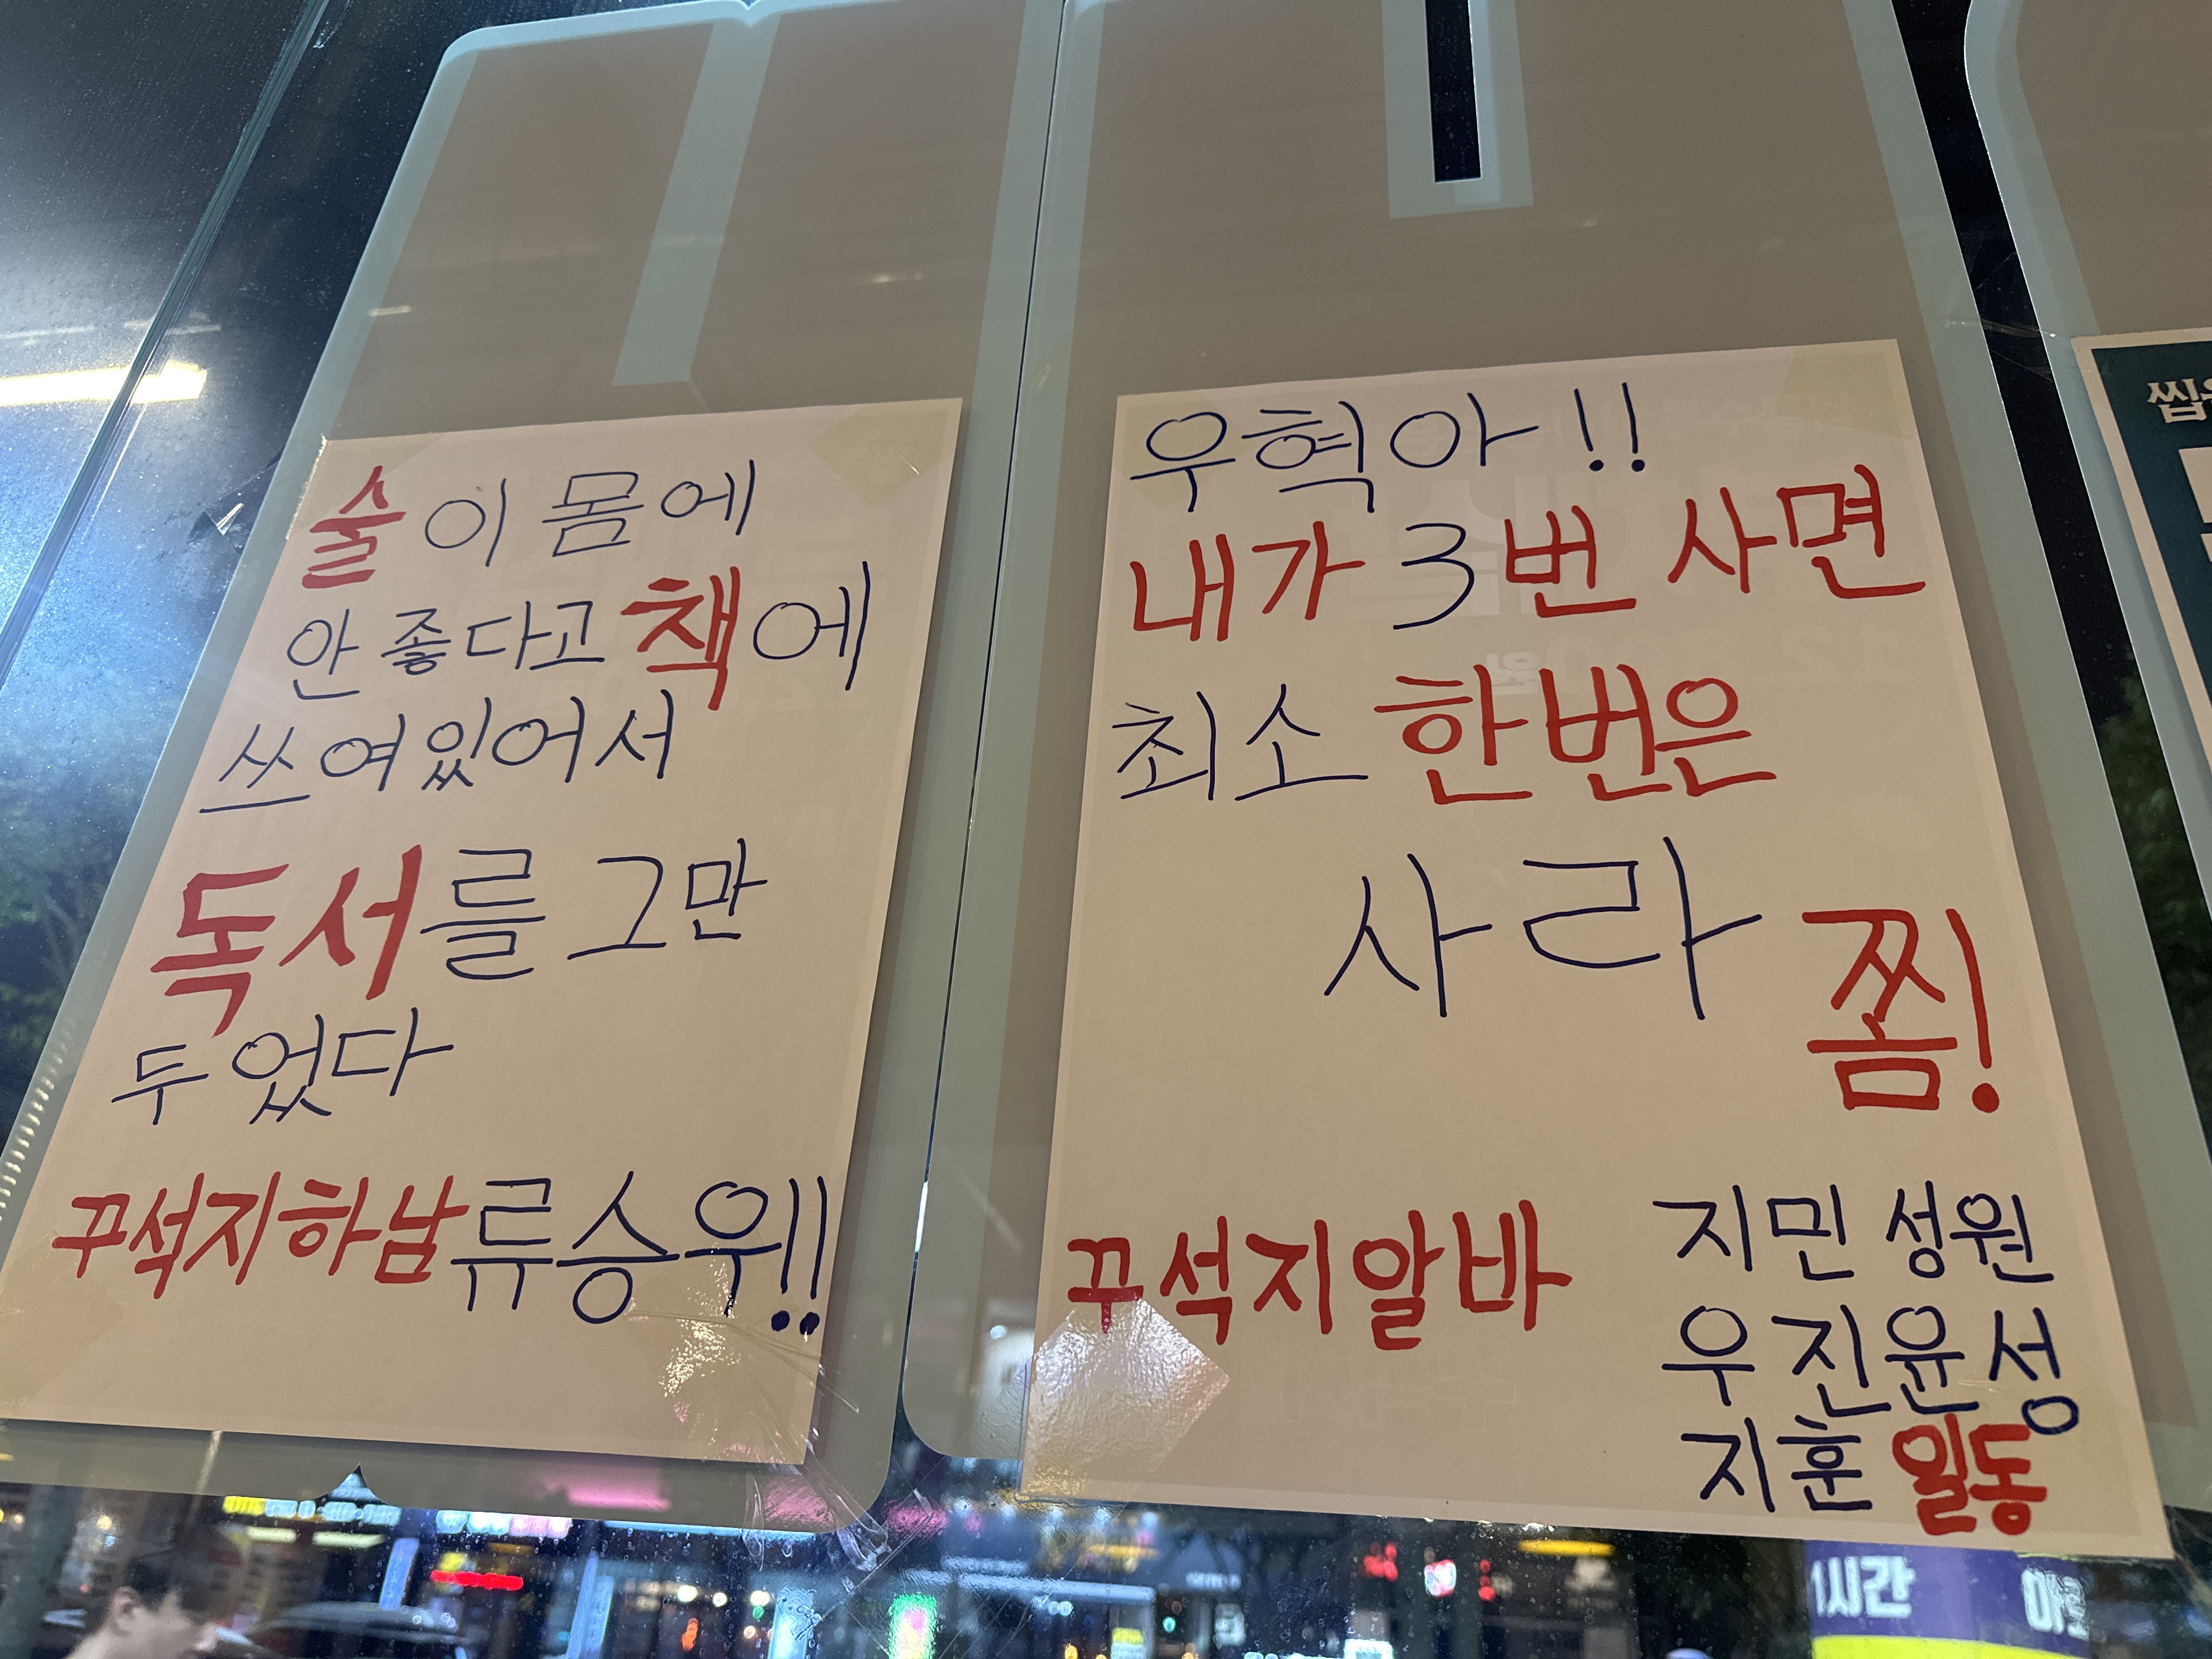 술이 몸에
안 좋다고 책에
쓰여있어서
독서를 그만
두었다
꾸석지하남류승우!!
우혁아!!
내가 3번 사면
최소 한번은
사라 쫌!
꾸석지알바
지민 성원
우진윤성
지훈 일동
1시간